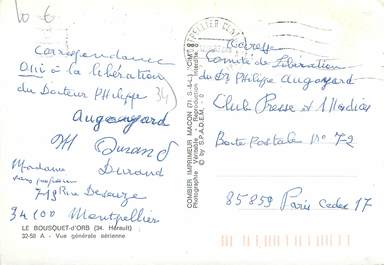 10 €
Correspondance
à la libération
du Docteur Philippe
34
Augoyard
M Durand
Madame Durand
sans profession
7-19 Rue
34100 Montpellier
LE BOUSQUET-d'ORB (34. Hérault)
32-50 A - Vue générale aérienne
COMBIER IMPRIMEUR MACON (71. S.-&-L.) "CIM"
Photographie Véritable - Reproduction interdite
© by S.P.A.D.E.M.
MONTPELLIER
Adresse
Comité de Libération
du Dr Philippe Augoyard
Club Presse et Médias
Boite Postale N° 72
85859 Paris Cedex 17